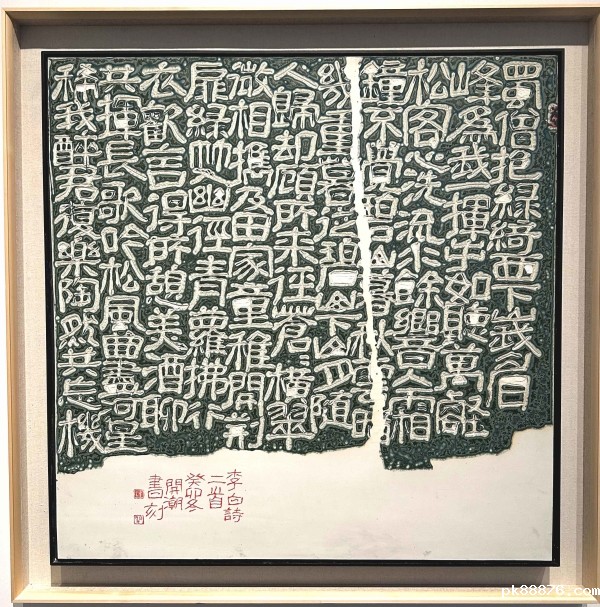 蜀僧抱綠綺西下峨眉
峰為我一揮手如聽萬壑
松客心洗流水餘響入霜
鐘不覺碧山暮秋雲暗
幾重暮從碧山下山月隨
人歸却顧所來徑蒼〻橫翠
微相攜及田家童稚開荊
扉綠竹幽徑青蘿拂行
衣歡言得所憩美酒聊
共揮長歌吟松風曲盡河星
稀我醉君復樂陶然共忘機
李白詩
二首
癸卯冬
開潮
書刻
pk88878.com